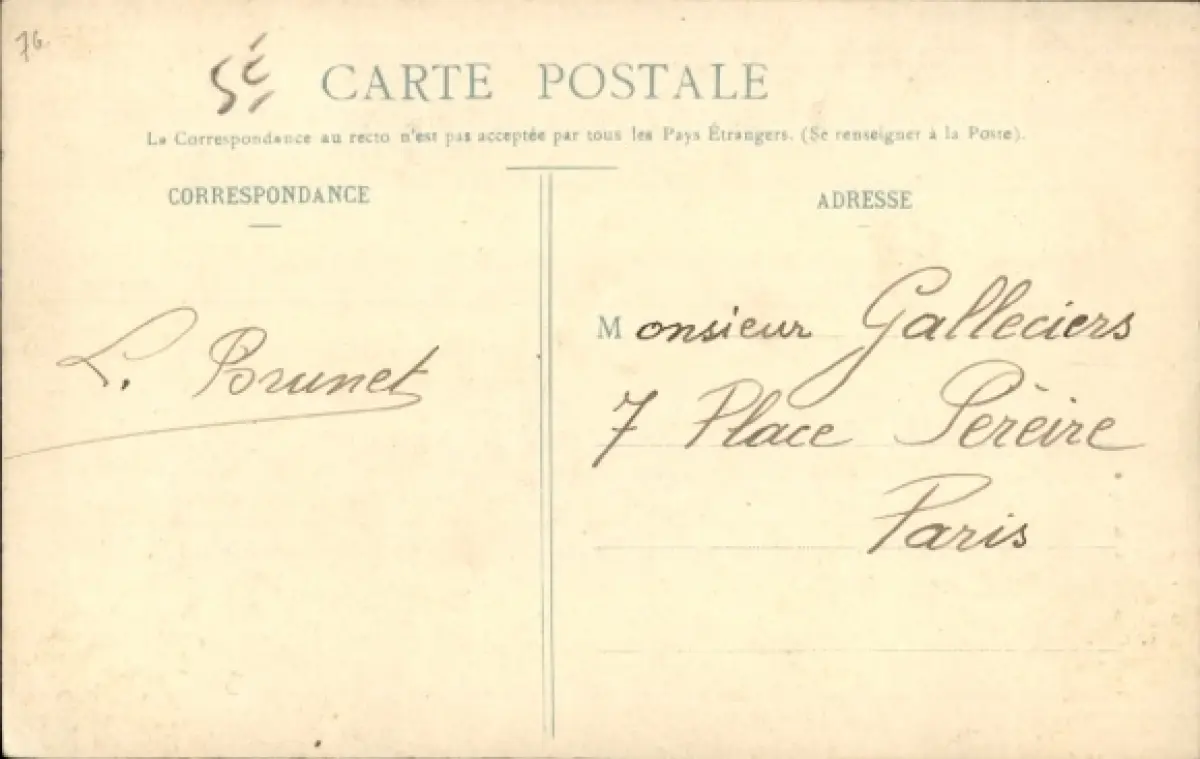 76
5€
CARTE POSTALE
La Correspondance au recto n'est pas acceptée par tous les Pays Étrangers. (Se renseigner à la Poste).
CORRESPONDANCE
ADRESSE
L. Brunet
Monsieur Galleciers
7 Place Péreire
Paris